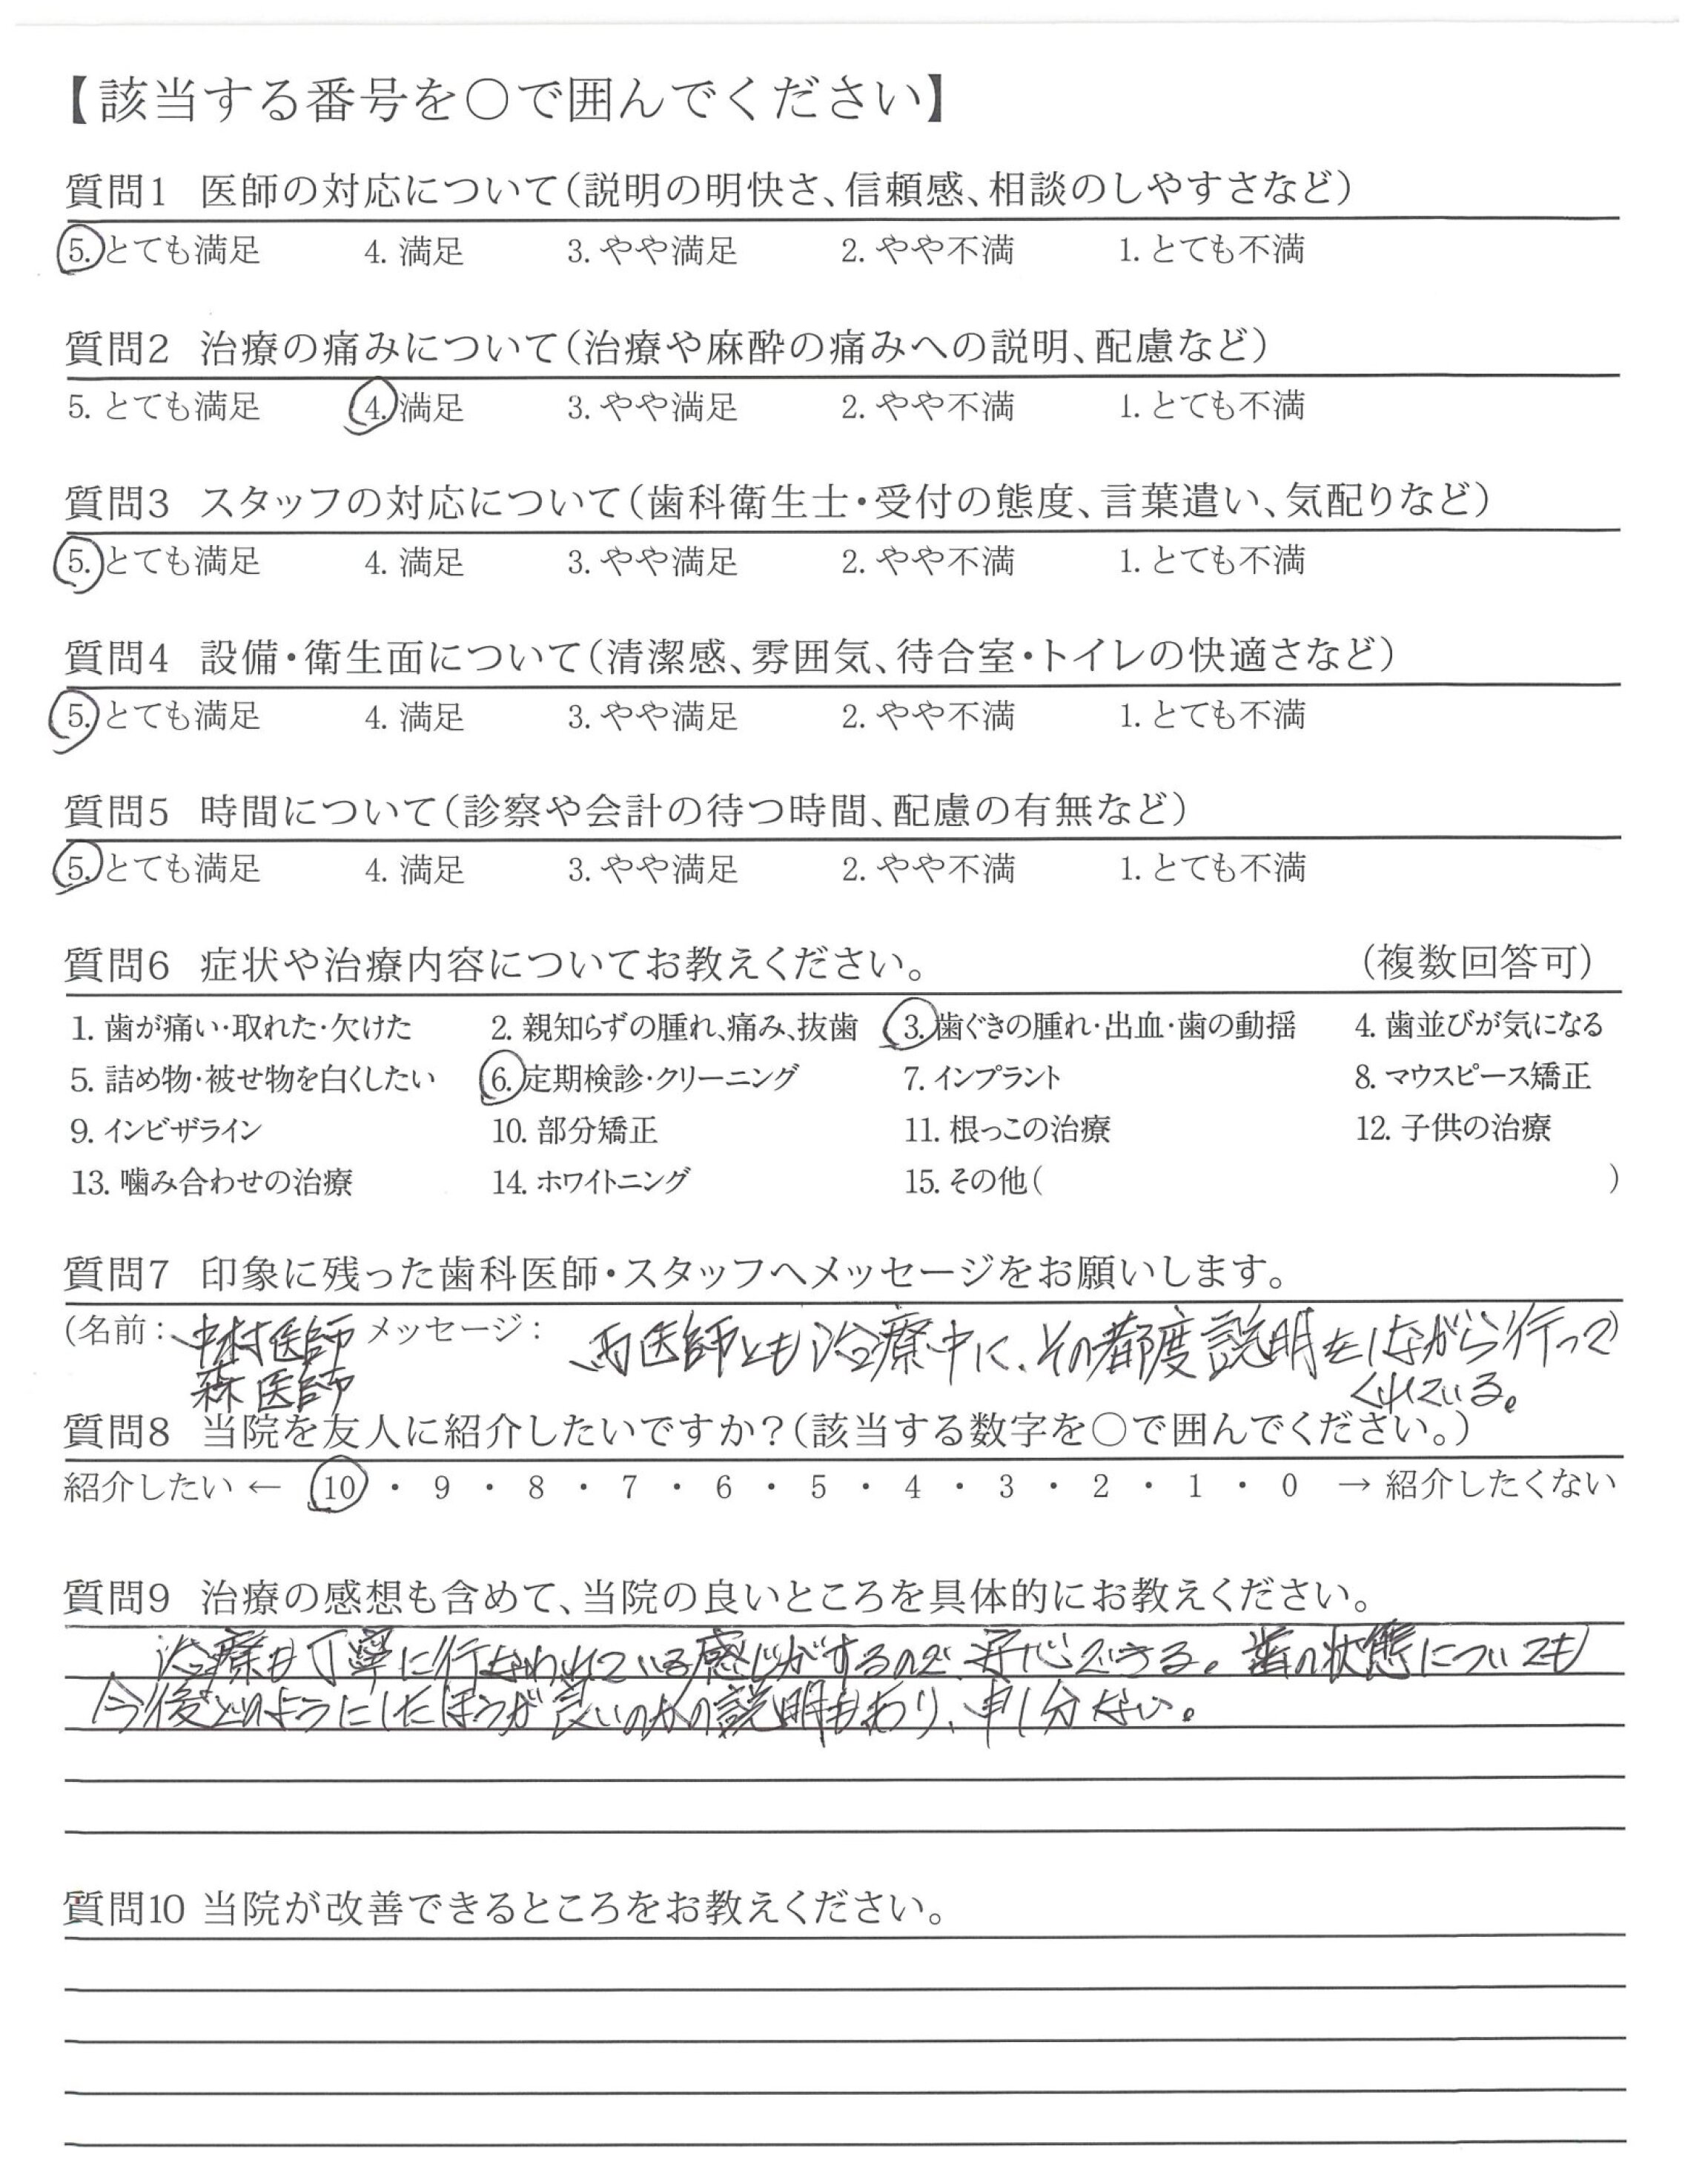 【該当する番号を○で囲んでください】
質問1 医師の対応について(説明の明快さ、信頼感、相談のしやすさなど)
5. とても満足 4. 満足 3. やや満足 2. やや不満 1. とても不満
質問2 治療の痛みについて(治療や麻酔の痛みへの説明、配慮など)
5. とても満足 4. 満足 3. やや満足 2. やや不満 1. とても不満
質問3 スタッフの対応について(歯科衛生士・受付の態度、言葉遣い、気配りなど)
5. とても満足 4. 満足 3. やや満足 2. やや不満 1. とても不満
質問4 設備・衛生面について(清潔感、雰囲気、待合室・トイレの快適さなど)
5. とても満足 4. 満足 3. やや満足 2. やや不満 1. とても不満
質問5 時間について(診察や会計の待つ時間、配慮の有無など)
5. とても満足 4. 満足 3. やや満足 2. やや不満 1. とても不満
質問6 症状や治療内容についてお教えください。 (複数回答可)
1. 歯が痛い・取れた・欠けた 2. 親知らずの腫れ、痛み、抜歯 3. 歯ぐきの腫れ・出血・歯の動揺 4. 歯並びが気になる
5. 詰め物・被せ物を白くしたい 6. 定期検診・クリーニング 7. インプラント 8. マウスピース矯正
9. インビザライン 10. 部分矯正 11. 根っこの治療 12. 子供の治療
13. 噛み合わせの治療 14. ホワイトニング 15. その他( )
質問7 印象に残った歯科医師・スタッフへメッセージをお願いします。
(名前: 中村医師 メッセージ: 両医師とも治療中に、その都度説明をしながら行って)
森医師 くれている。
質問8 当院を友人に紹介したいですか?(該当する数字を○で囲んでください。)
紹介したい ← 10 ・ 9 ・ 8 ・ 7 ・ 6 ・ 5 ・ 4 ・ 3 ・ 2 ・ 1 ・ 0 → 紹介したくない
質問9 治療の感想も含めて、当院の良いところを具体的にお教えください。
治療も丁寧に行なわれている感じがするので、安心できる。歯の状態についても
今後どのようにしたほうが良いのかの説明もあり、申し分ない。
質問10 当院が改善できるところをお教えください。